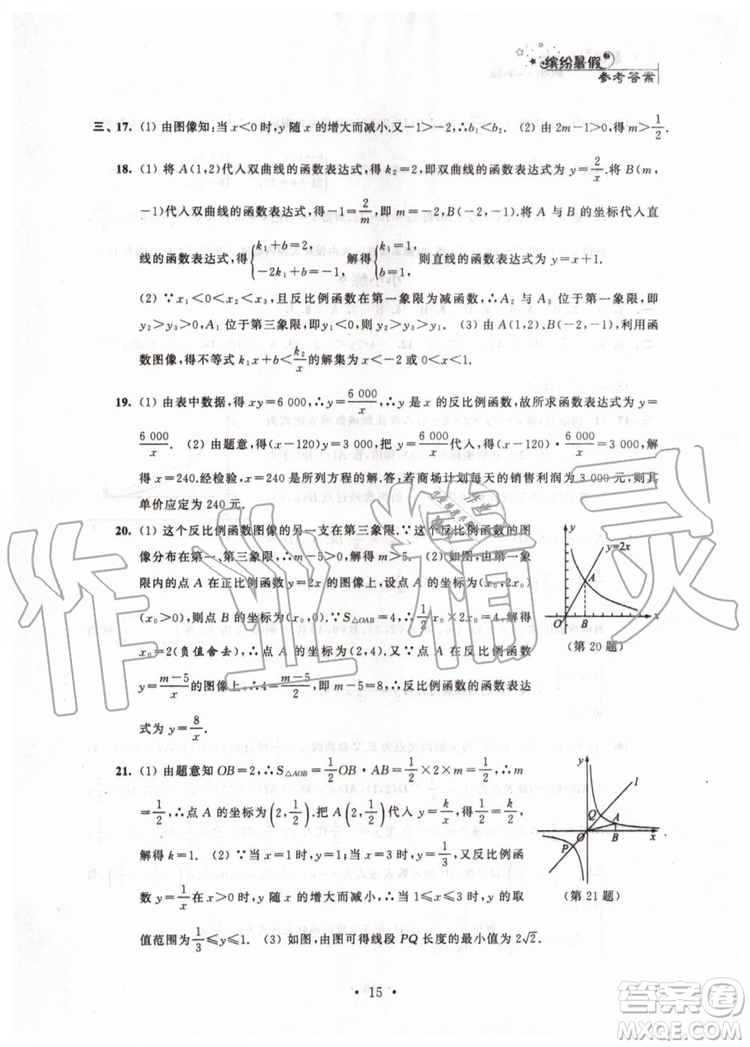 缤纷暑假
参考答案
三、17. (1) 由图像知;当 x<0 时,y 随 x 的增大而减小.又-1>-2,∴b₁<b₂. (2) 由 2m-1>0,得 m>1/2.
18. (1) 将 A(1,2)代人双曲线的函数表达式,得 k₂=2,即双曲线的函数表达式为 y=2/x.将 B(m,
-1)代人双曲线的函数表达式,得-1=2/m,即 m=-2,B(-2,-1).将 A 与 B 的坐标代人直
线的函数表达式,得{k₁+b=2, -2k₁+b=-1, 解得{k₁=1, b=1, 则直线的函数表达式为 y=x+1.
(2) ∵x₁<x₂<0,且反比例函数在第一象限为减函数,∴A₂ 与 A₁ 位于第三象限,即
y₂<y₁.∵A₃ 位于第一象限,即 y₃>0,则 y₂<y₁<y₃. (3) 由 A(1,2),B(-2,-1),利用函
数图像,得不等式 k₁x+b<k₂/x的解集为 x<-2 或 0<x<1.
19. (1) 由表中数据,得 xy=6 000,∴y=6 000/x,∴y 是 x 的反比例函数,故所求函数表达式为 y=
6 000/x. (2) 由题意,得(x-120)y=3 000,把 y=6 000/x代人,得(x-120)·6 000/x=3 000,解
得 x=240.经检验,x=240 是所列方程的解.答:若商场计划每天的销售利润为 3 000 元,则其
单价应定为 240 元.
20. (1) 这个反比例函数图像的另一支在第三象限.∵这个反比例函数的图
像分布在第一、第三象限,∴m-5>0,解得 m>5. (2) 如图,由第一象
限内的点 A 在正比例函数 y=2x 的图像上,设点 A 的坐标为(x₀,2x₀)
(x₀>0),则点 B 的坐标为(x₀,0).∵S△OAB=4,∴1/2x₀·2x₀=4,解得
x₀=2(负值舍去),∴点 A 的坐标为(2,4).又∵点 A 在反比例函数
y=m-5/x的图像上,∴4=m-5/2,即 m-5=8,∴反比例函数的函数表达
式为 y=8/x.
y
y=2x
A
O
B
x
(第 20 题)
21. (1) 由题意知 OB=2,∴S△AOB=1/2OB·AB=1/2×2×m=1/2,∴m=
1/2,∴点 A 的坐标为(2,1/2).把 A(2,1/2)代人 y=k/x,得1/2=k/2,
解得 k=1. (2) ∵当 x=1 时,y=1;当 x=3 时,y=1/3,又反比例函
数 y=1/x在 x>0 时,y 随 x 的增大而减小,∴当 1≤x≤3 时,y 的取
值范围为1/3≤y≤1. (3) 如图,由图可得线段 PQ 长度的最小值为 2√2.
y
l
Q
A
O
B
x
P
(第 21 题)
· 15 ·
作业精灵
答案圈
MXQE.COM